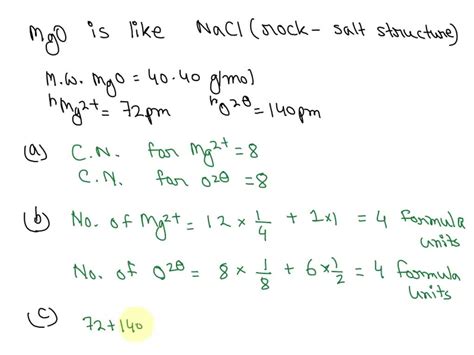 MgO is like NaCl (rock-salt structure)
M.W. MgO = 40.40 g/mol
rMg2+ = 72pm rO2⊖ = 140pm
(a) C.N. for Mg2+ = 8
C.N. for O2⊖ = 8
(b) No. of Mg2+ = 12 × 1/4 + 1×1 = 4 formula units
No. of O2⊖ = 8 × 1/8 + 6 × 1/2 = 4 formula units
(c) 72+140